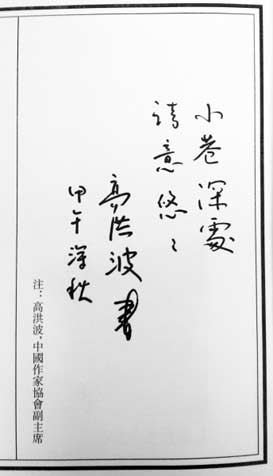 小巷深處
诗意悠々
高洪波書
甲午深秋
注：高洪波，中國作家協會副主席